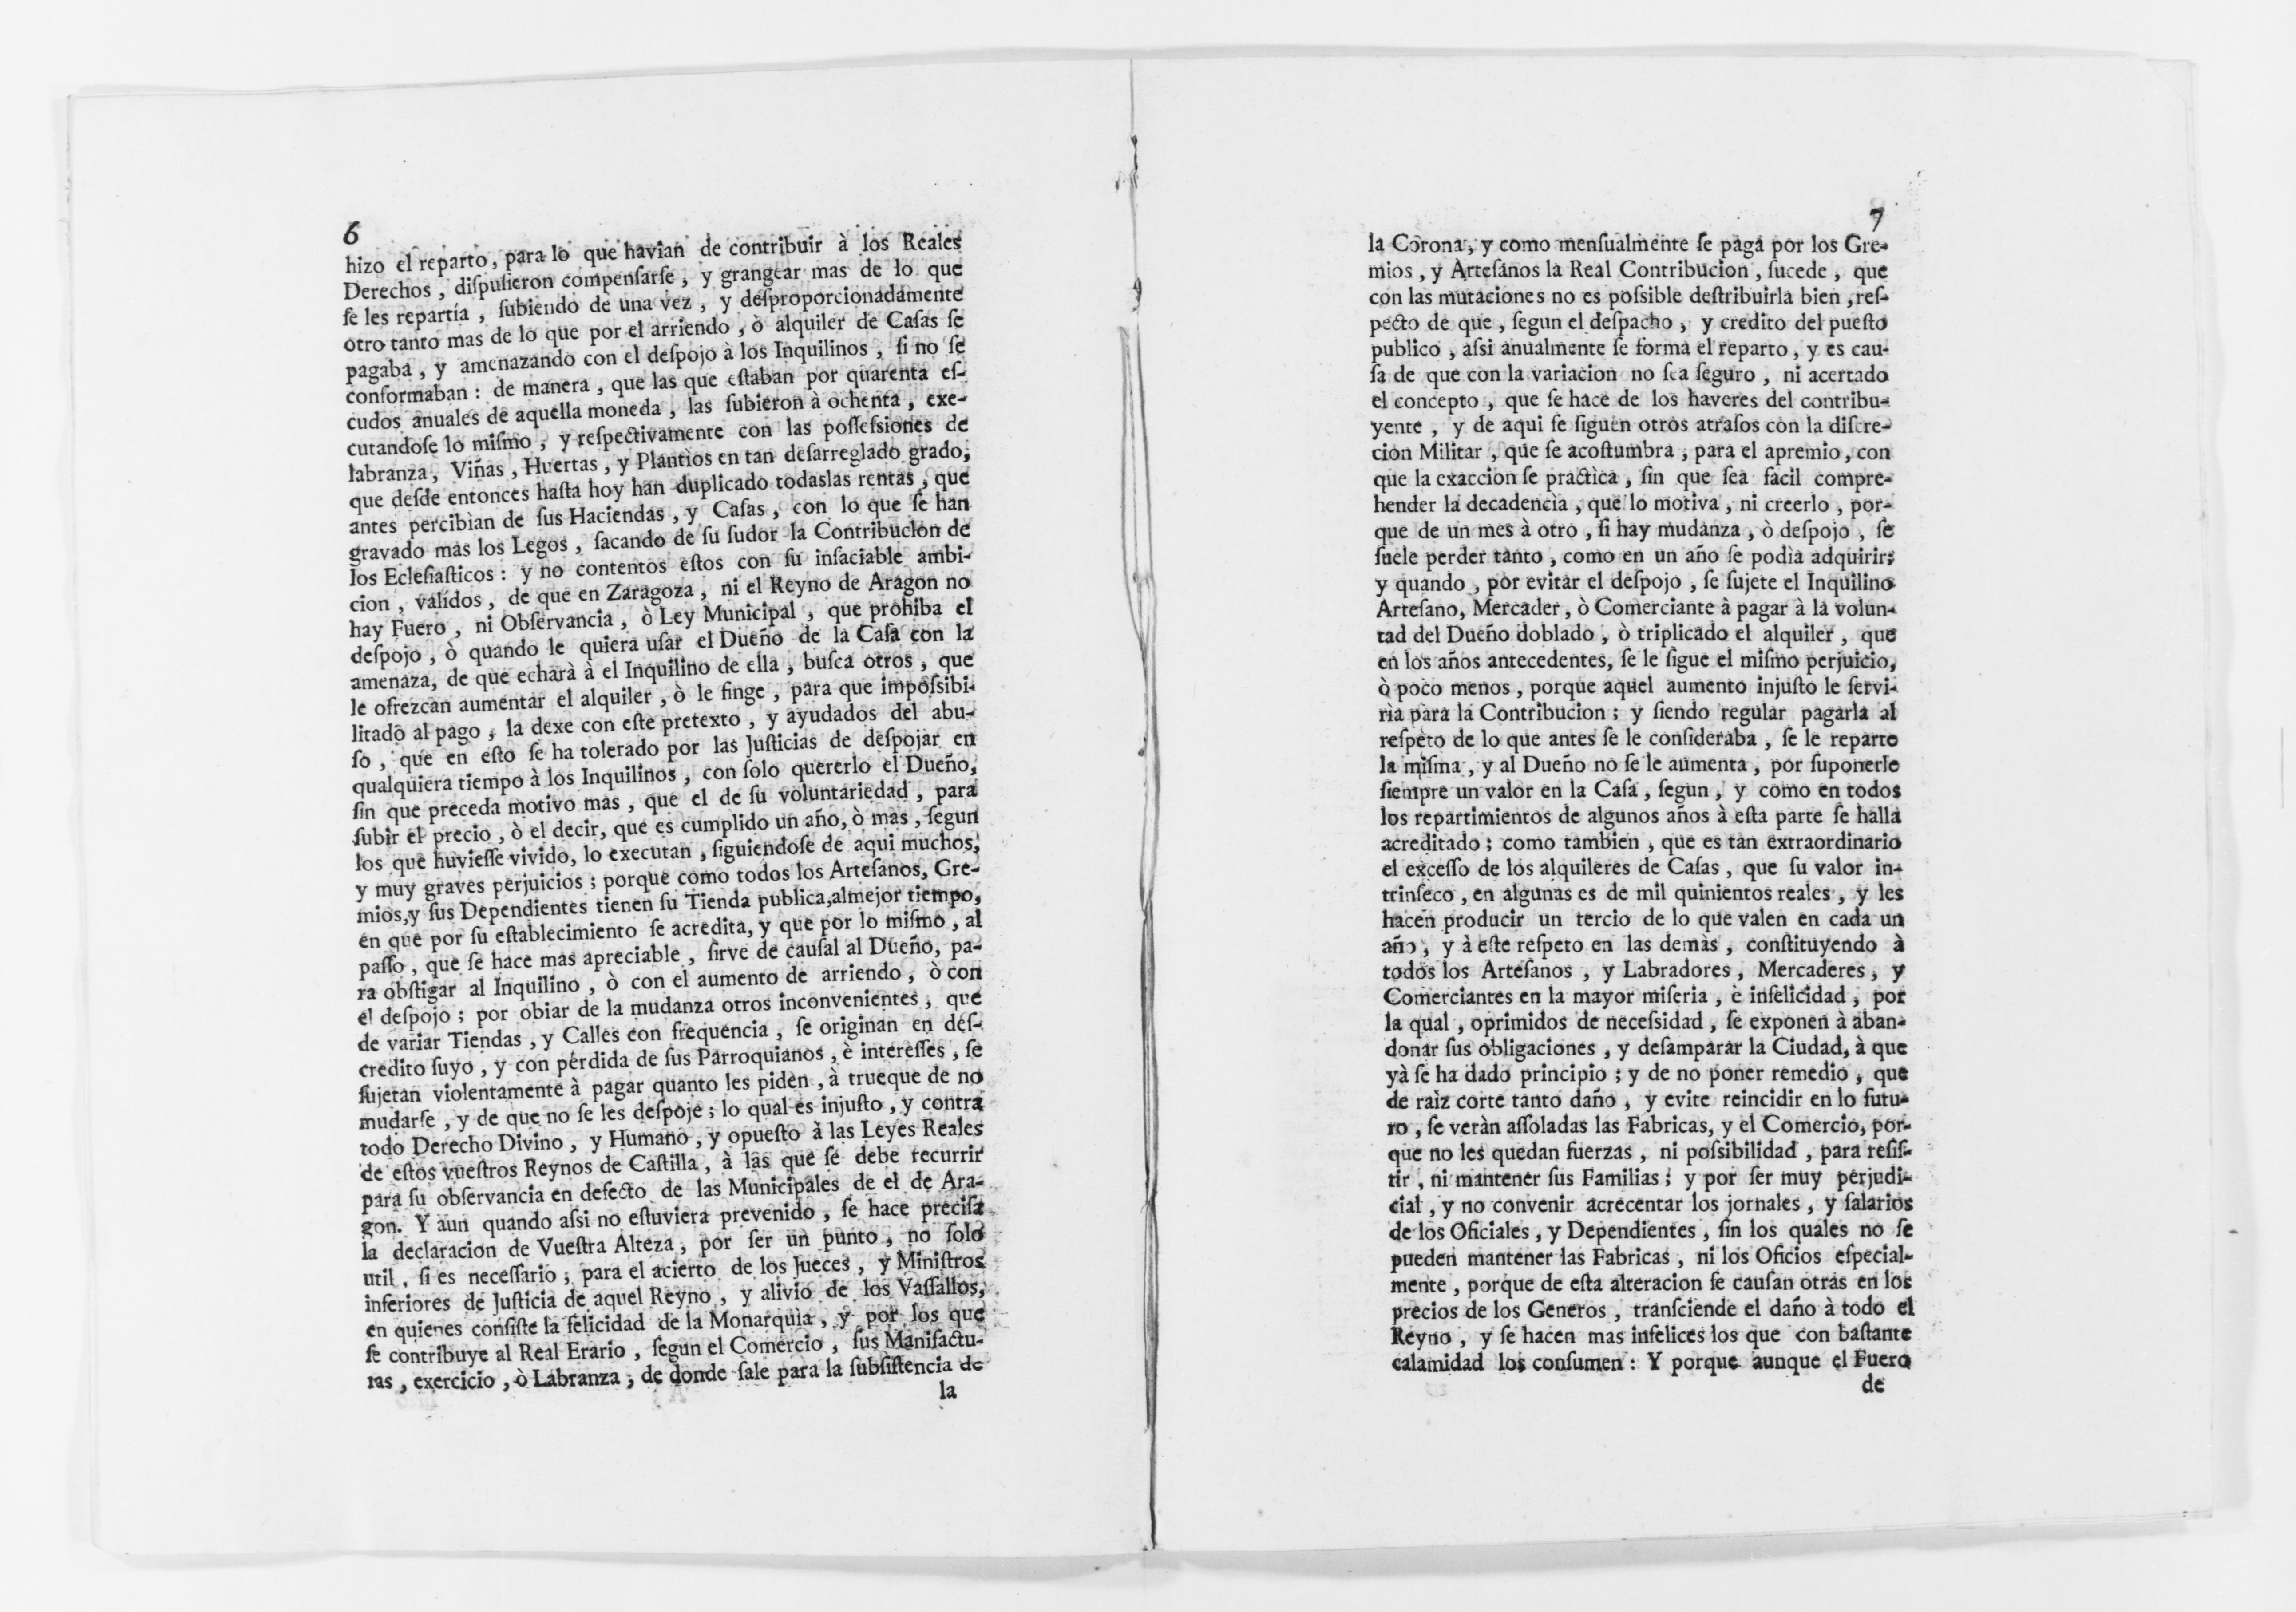 6
hizo el reparto, para lo que havian de contribuir à los Reales
Derechos, dispusieron compensarse, y grangear mas de lo que
ſe les repartía, ſubiendo de una vez, y deſproporcionadamente
otro tanto mas de lo que por el arriendo, ò alquiler de Caſas ſe
pagaba, y amenazando con el deſpojo à los Inquilinos, ſi no ſe
conformaban: de manera, que las que eſtaban por quarenta eſ-
cudos anuales de aquella moneda, las ſubieron à ochenta, exe-
cutandoſe lo miſmo, y reſpectivamente con las poſſeſsiones de
labranza, Viñas, Huertas, y Plantìos en tan deſarreglado grado,
que deſde entonces haſta hoy han duplicado todaslas rentas, que
antes percibìan de ſus Haciendas, y Caſas, con lo que ſe han
gravado mas los Legos, ſacando de ſu ſudor la Contribucion de
los Ecleſiaſticos: y no contentos eſtos con ſu inſaciable ambi-
cion, validos, de que en Zaragoza, ni el Reyno de Aragon no
hay Fuero, ni Obſervancia, ò Ley Municipal, que prohiba el
deſpojo, ò quando le quiera uſar el Dueño de la Caſa con la
amenaza, de que echarà à el Inquilino de ella, buſca otros, que
le ofrezcan aumentar el alquiler, ò le finge, para que impoſsibi-
litado al pago, la dexe con eſte pretexto, y ayudados del abu-
ſo, que en eſto ſe ha tolerado por las Juſticias de deſpojar en
qualquiera tiempo à los Inquilinos, con ſolo quererlo el Dueño,
ſin que preceda motivo mas, que el de ſu voluntariedad, para
ſubir el precio, ò el decir, que es cumplido un año, ò mas, ſegun
los que huvieſſe vivido, lo executan, ſiguiendoſe de aqui muchos,
y muy graves perjuicios; porque como todos los Arteſanos, Gre-
mios,y ſus Dependientes tienen ſu Tienda publica,almejor tiempo,
en que por ſu eſtablecimiento ſe acredita, y que por lo miſmo, al
paſſo, que ſe hace mas apreciable, ſirve de cauſal al Dueño, pa-
ra obſtigar al Inquilino, ò con el aumento de arriendo, ò con
el deſpojo; por obiar de la mudanza otros inconvenientes, que
de variar Tiendas, y Calles con frequencia, ſe originan en deſ-
credito ſuyo, y con pérdida de ſus Parroquianos, è intereſſes, ſe
ſujetan violentamente à pagar quanto les piden, à trueque de no
mudarſe, y de que no ſe les deſpoje; lo qual es injuſto, y contra
todo Derecho Divino, y Humano, y opueſto à las Leyes Reales
de eſtos vueſtros Reynos de Caſtilla, à las que ſe debe recurrir
para ſu obſervancia en defecto de las Municipales de el de Ara-
gon. Y aun quando aſsi no eſtuviera prevenido, ſe hace preciſa
la declaracion de Vueſtra Alteza, por ſer un punto, no ſolo
util, ſi es neceſſario, para el acierto de los Jueces, y Miniſtros
inferiores de Juſticia de aquel Reyno, y alivio de los Vaſſallos,
en quienes conſiſte la felicidad de la Monarquìa, y por los que
ſe contribuye al Real Erario, ſegun el Comercio, ſus Manifactu-
ras, exercicio, ò Labranza, de donde ſale para la ſubſiſtencia de
la
7
la Corona, y como menſualmente ſe paga por los Gre-
mios, y Arteſanos la Real Contribucion, ſucede, que
con las mutaciones no es poſsible deſtribuirla bien, reſ-
pecto de que, ſegun el deſpacho, y credito del pueſto
publico, aſsi anualmente ſe forma el reparto, y es cau-
ſa de que con la variacion no ſea ſeguro, ni acertado
el concepto, que ſe hace de los haveres del contribu-
yente, y de aqui ſe ſiguen otros atraſos con la diſcre-
cion Militar, que ſe acoſtumbra, para el apremio, con
que la exaccion ſe practìca, ſin que ſea facil compre-
hender la decadencìa, que lo motiva, ni creerlo, por-
que de un mes à otro, ſi hay mudanza, ò deſpojo, ſe
ſuele perder tanto, como en un año ſe podìa adquirir;
y quando, por evitar el deſpojo, ſe ſujete el Inquilino
Arteſano, Mercader, ò Comerciante à pagar à la volun-
tad del Dueño doblado, ò triplicado el alquiler, que
en los años antecedentes, ſe le ſigue el miſmo perjuicio,
ò poco menos, porque aquel aumento injuſto le ſervi-
rìa para la Contribucion; y ſiendo regular pagarla al
reſpeto de lo que antes ſe le conſideraba, ſe le reparte
la miſma, y al Dueño no ſe le aumenta, por ſuponerle
ſiempre un valor en la Caſa, ſegun, y como en todos
los repartimientos de algunos años à eſta parte ſe halla
acreditado; como tambien, que es tan extraordinario
el exceſſo de los alquileres de Caſas, que ſu valor in-
trinſeco, en algunas es de mil quinientos reales, y les
hacen producir un tercio de lo que valen en cada un
año, y à eſte reſpeto en las demàs, conſtituyendo à
todos los Arteſanos, y Labradores, Mercaderes, y
Comerciantes en la mayor miſeria, è infelicidad, por
la qual, oprimidos de neceſsidad, ſe exponen à aban-
donar ſus obligaciones, y deſamparar la Ciudad, à que
yà ſe ha dado principio; y de no poner remedio, que
de raìz corte tanto daño, y evite reincidir en lo futu-
ro, ſe veràn aſſoladas las Fabricas, y el Comercio, por-
que no les quedan fuerzas, ni poſsibilidad, para reſiſ-
tir, ni mantener ſus Familias; y por ſer muy perjudi-
cial, y no convenir acrecentar los jornales, y ſalarios
de los Oficiales, y Dependientes, ſin los quales no ſe
pueden mantener las Fabricas, ni los Oficios eſpecial-
mente, porque de eſta alteracion ſe cauſan otras en los
precios de los Generos, tranſciende el daño à todo el
Reyno, y ſe hacen mas infelices los que con baſtante
calamidad los conſumen: Y porque aunque el Fuero
de